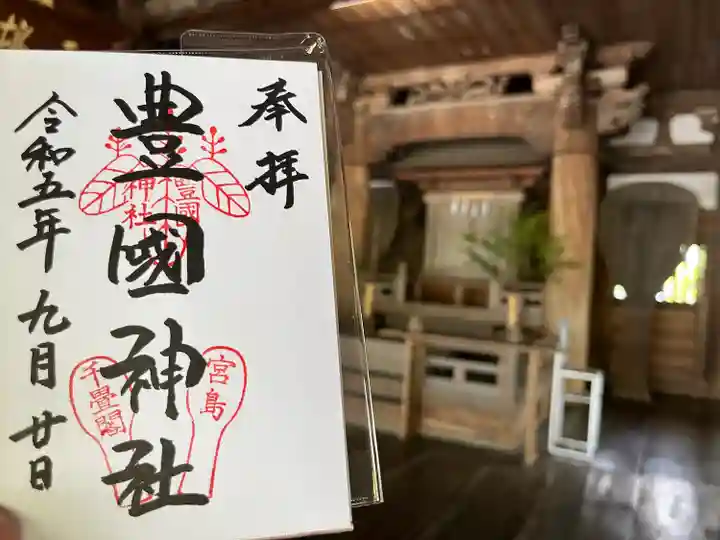 奉拝
豊國神社
豊國
神社
宮島
千畳閣
令和五年九月廿日